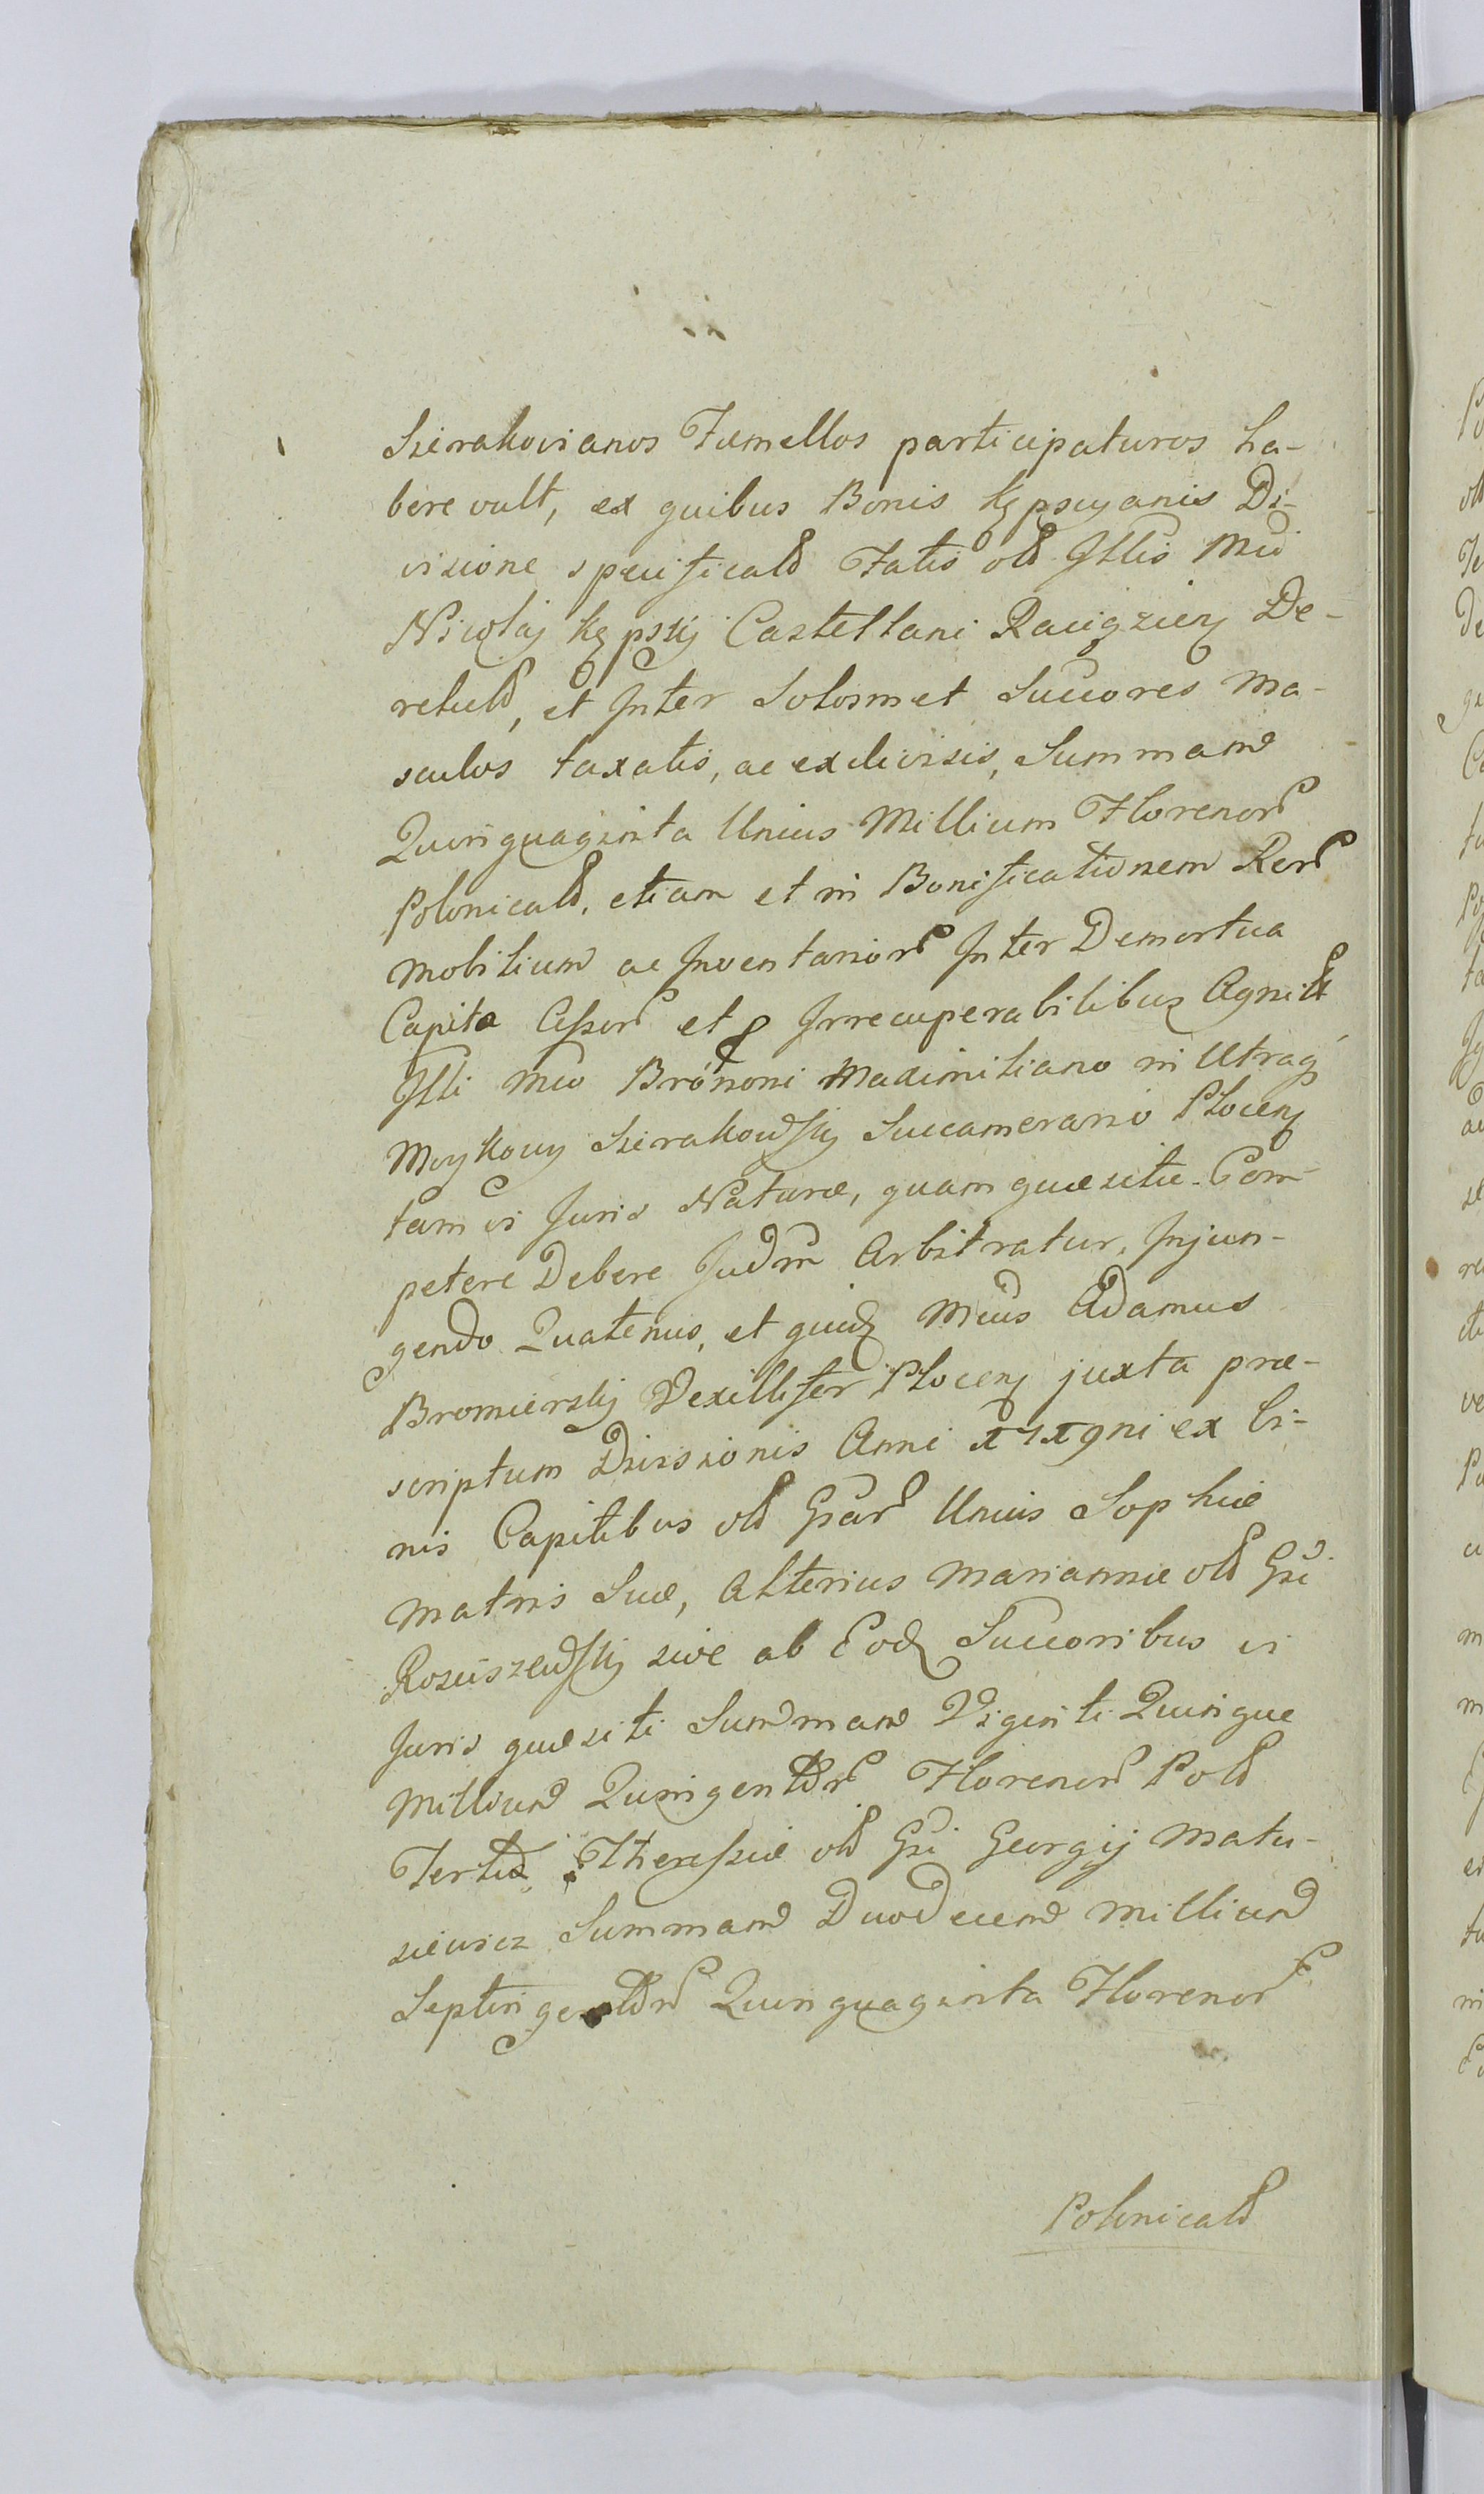 Sierakovianos Famellos participaturos ha-
bere vult, ex quibus Bonis Kępscyanis Di-
visione specificatd Fatis old Jllis Mci
Nicolaj Kępskj Castellani Raciązien De-
relictd, et Jnter Solosmet Succores Ma-
sculos taxatis, ac exdivisis, Summam
Quinquaginta Unius Millium Florenor
Polonicald, etiam et in Bonificationem Rer
Mobilium ac Jnventarior Jnter Demortua
Capita Cessor et Jrrecuperabilibus Agnit
Jlli Mco Brononi Maximiliano in Utraq
Moykowy Sierakowskj Succamerario Plocen
tam vi Juris Naturæ, quam quæsitæ Com-
petere Debere Judm Arbitratur, Jnjun-
gendo Quatenus, et quidz Mcus Adamus
Bromierskj Vexillifer Plocen juxta præ-
scriptum Divisionis Anni ex bi-
nis Capitibus old Gsar Unius Sophiæ
Matris Suæ, Alterius Mariannæ old Gsi
Rosciszewskj sive ab Eodz Succoribus vi
Juris quæsiti Summam Viginti Quinque
Millium Quingentor Florenor Pold
Tertiæ Theressiæ old Gsi Georgij Matu-
siewicz Summam Duodecem Millium
Septingentor Quinquaginta Florenor
Polonicald